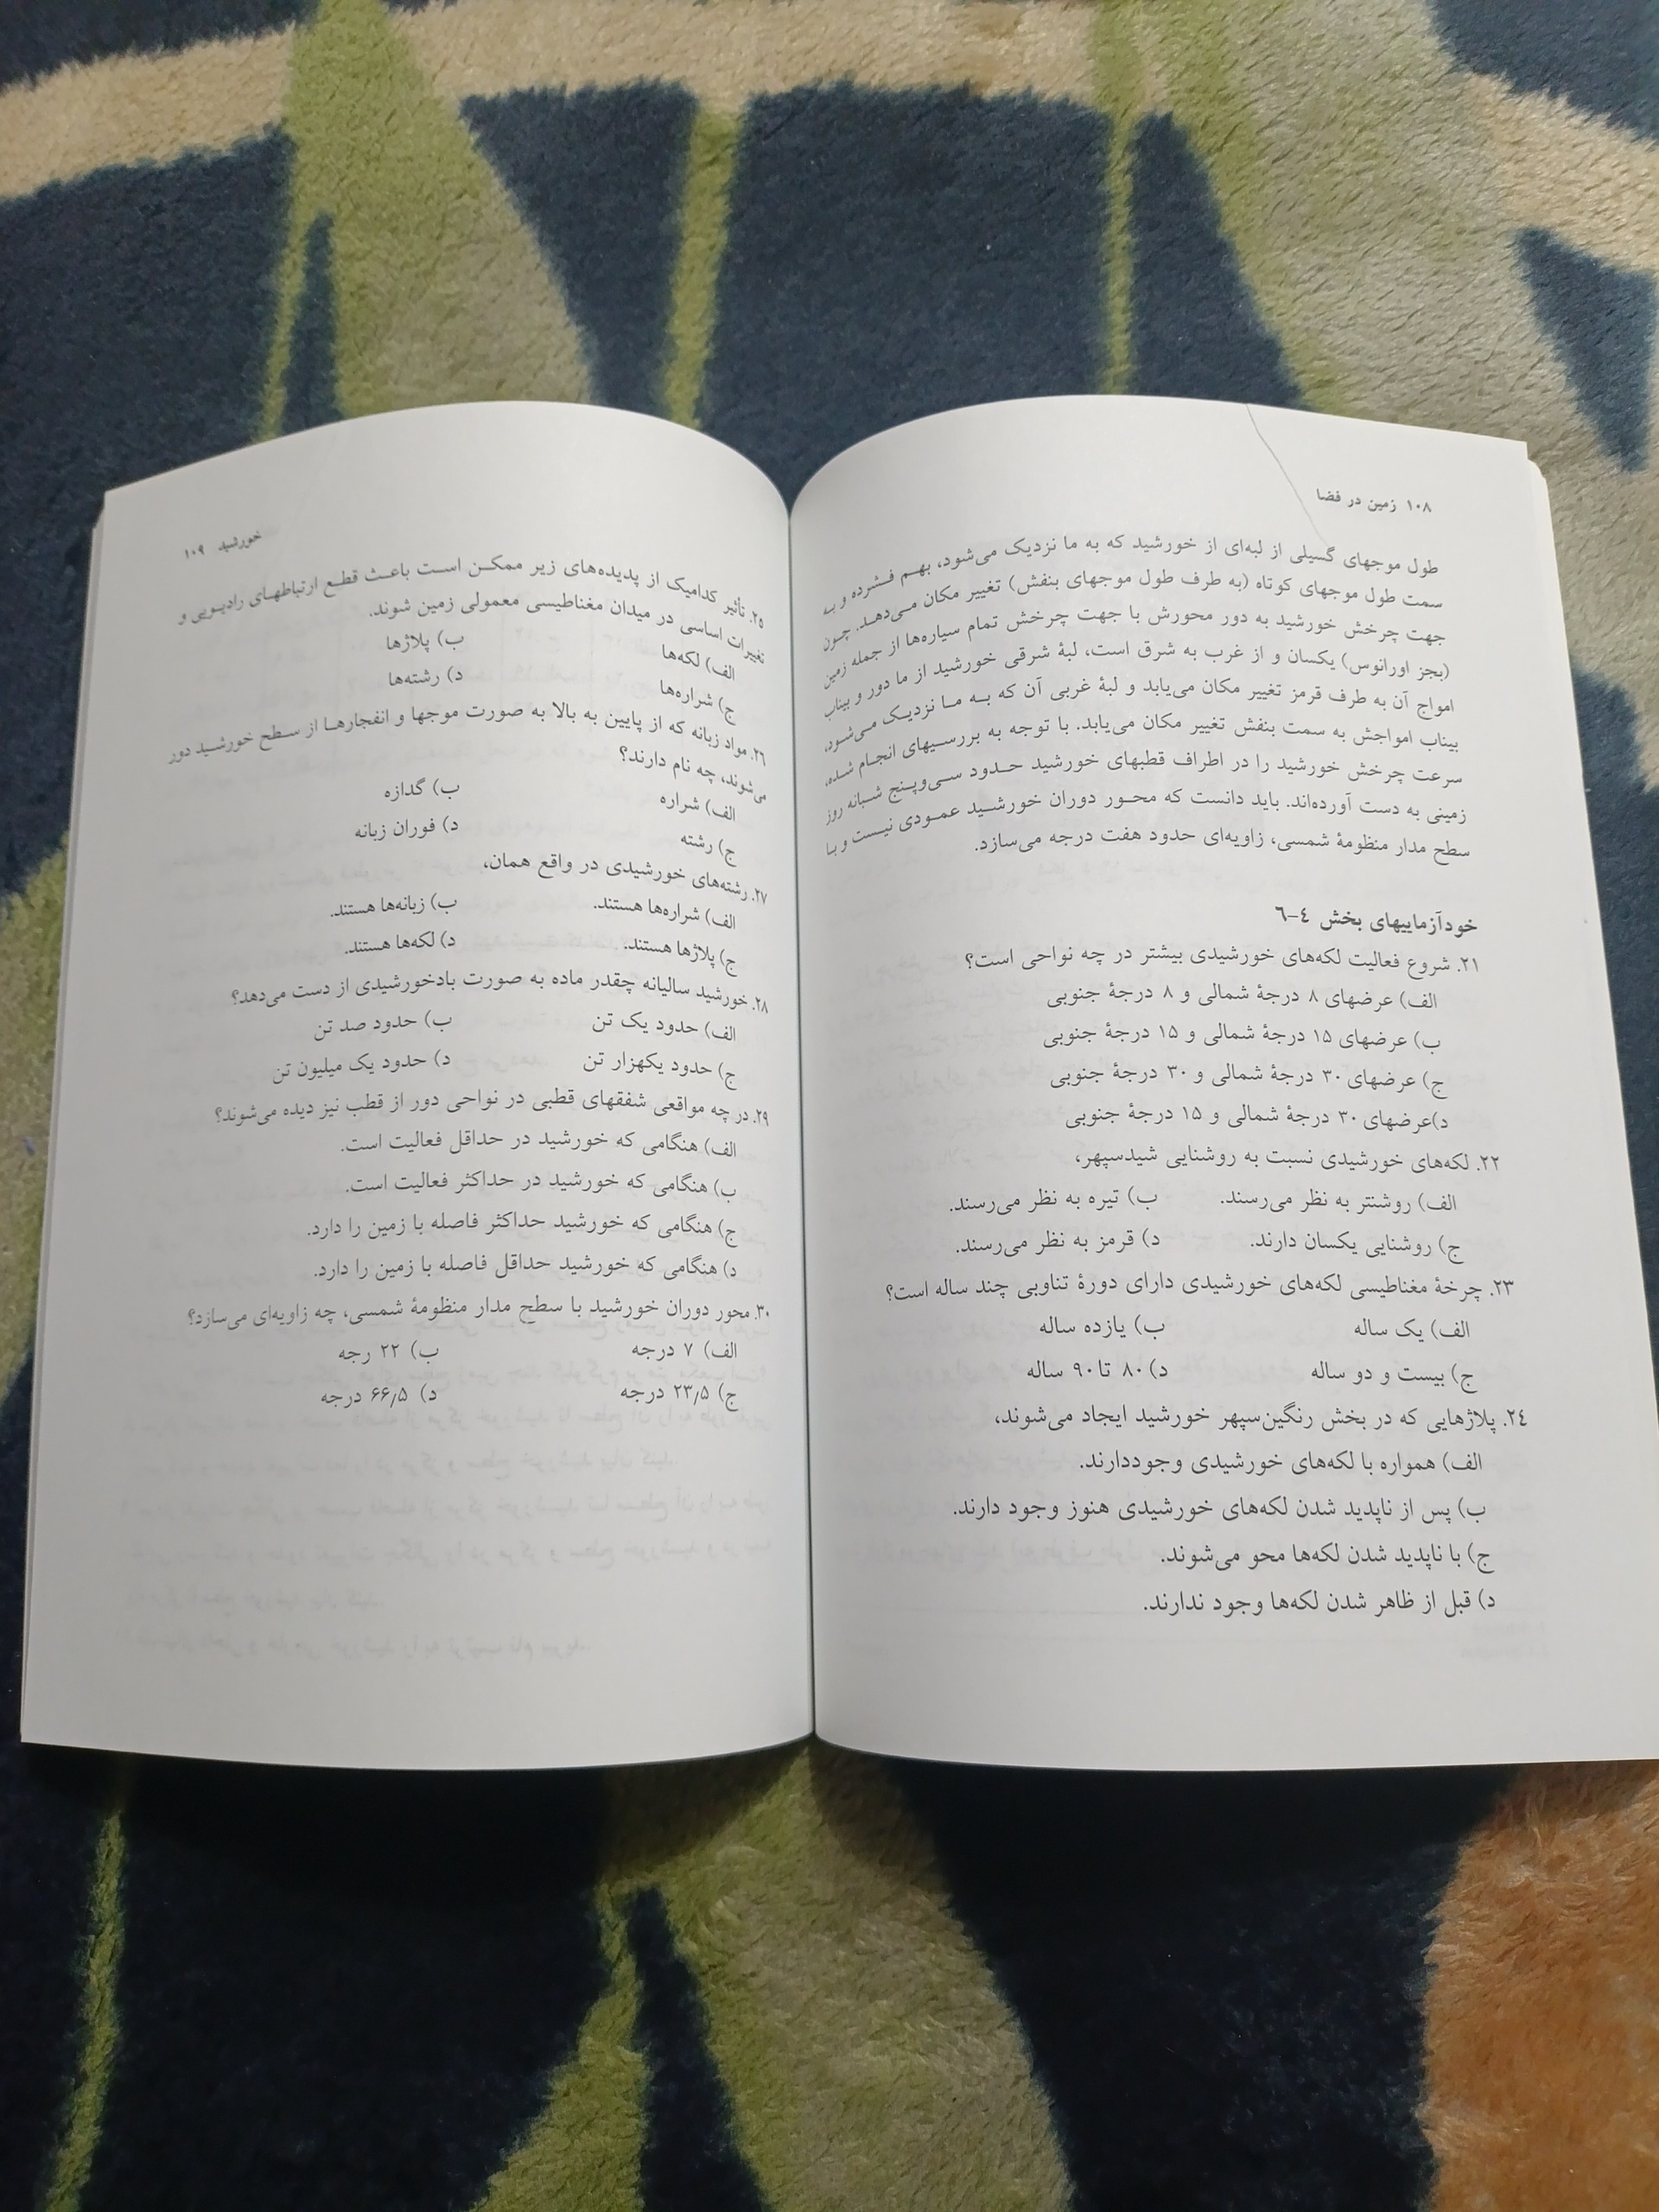 ۱۰۸ زمین در فضا
طول موجهای گسیلی از لبه‌ای از خورشید که به ما نزدیک می‌شود، بهم فشرده و به
سمت طول موجهای کوتاه (به طرف طول موجهای بنفش) تغییر مکان می‌دهد. چون
جهت چرخش خورشید به دور محورش با جهت چرخش تمام سیاره‌ها از جمله زمین
(بجز اورانوس) یکسان و از غرب به شرق است، لبهٔ شرقی خورشید از ما دور و بیناب
امواج آن به طرف قرمز تغییر مکان می‌یابد و لبهٔ غربی آن که به ما نزدیک می‌شود،
بیناب امواجش به سمت بنفش تغییر مکان می‌یابد. با توجه به بررسیهای انجام شده،
سرعت چرخش خورشید را در اطراف قطبهای خورشید حدود سی‌وپنج شبانه روز
زمینی به دست آورده‌اند. باید دانست که محور دوران خورشید عمودی نیست و با
سطح مدار منظومهٔ شمسی، زاویه‌ای حدود هفت درجه می‌سازد.
خودآزماییهای بخش ۴-۶
۲۱. شروع فعالیت لکه‌های خورشیدی بیشتر در چه نواحی است؟
الف) عرضهای ۸ درجهٔ شمالی و ۸ درجهٔ جنوبی
ب) عرضهای ۱۵ درجهٔ شمالی و ۱۵ درجهٔ جنوبی
ج) عرضهای ۳۰ درجهٔ شمالی و ۳۰ درجهٔ جنوبی
د)عرضهای ۳۰ درجهٔ شمالی و ۱۵ درجهٔ جنوبی
۲۲. لکه‌های خورشیدی نسبت به روشنایی شیدسپهر،
الف) روشنتر به نظر می‌رسند. ب) تیره به نظر می‌رسند.
ج) روشنایی یکسان دارند. د) قرمز به نظر می‌رسند.
۲۳. چرخهٔ مغناطیسی لکه‌های خورشیدی دارای دورهٔ تناوبی چند ساله است؟
الف) یک ساله ب) یازده ساله
ج) بیست و دو ساله د) ۸۰ تا ۹۰ ساله
۲۴. پلاژهایی که در بخش رنگین‌سپهر خورشید ایجاد می‌شوند،
الف) همواره با لکه‌های خورشیدی وجوددارند.
ب) پس از ناپدید شدن لکه‌های خورشیدی هنوز وجود دارند.
ج) با ناپدید شدن لکه‌ها محو می‌شوند.
د) قبل از ظاهر شدن لکه‌ها وجود ندارند.
خورشید ۱۰۹
۲۵. تأثیر کدامیک از پدیده‌های زیر ممکن است باعث قطع ارتباطهای رادیویی و
تغییرات اساسی در میدان مغناطیسی معمولی زمین شوند.
الف) لکه‌ها ب) پلاژها
ج) شراره‌ها د) رشته‌ها
۲۶. مواد زبانه که از پایین به بالا به صورت موجها و انفجارها از سطح خورشید دور
می‌شوند، چه نام دارند؟
الف) شراره ب) گدازه
ج) رشته د) فوران زبانه
۲۷. رشته‌های خورشیدی در واقع همان،
الف) شراره‌ها هستند. ب) زبانه‌ها هستند.
ج) پلاژها هستند. د) لکه‌ها هستند.
۲۸. خورشید سالیانه چقدر ماده به صورت بادخورشیدی از دست می‌دهد؟
الف) حدود یک تن ب) حدود صد تن
ج) حدود یکهزار تن د) حدود یک میلیون تن
۲۹. در چه مواقعی شفقهای قطبی در نواحی دور از قطب نیز دیده می‌شوند؟
الف) هنگامی که خورشید در حداقل فعالیت است.
ب) هنگامی که خورشید در حداکثر فعالیت است.
ج) هنگامی که خورشید حداکثر فاصله با زمین را دارد.
د) هنگامی که خورشید حداقل فاصله با زمین را دارد.
۳۰. محور دوران خورشید با سطح مدار منظومهٔ شمسی، چه زاویه‌ای می‌سازد؟
الف) ۷ درجه ب) ۲۲ رجه
ج) ۲۳٫۵ درجه د) ۶۶٫۵ درجه